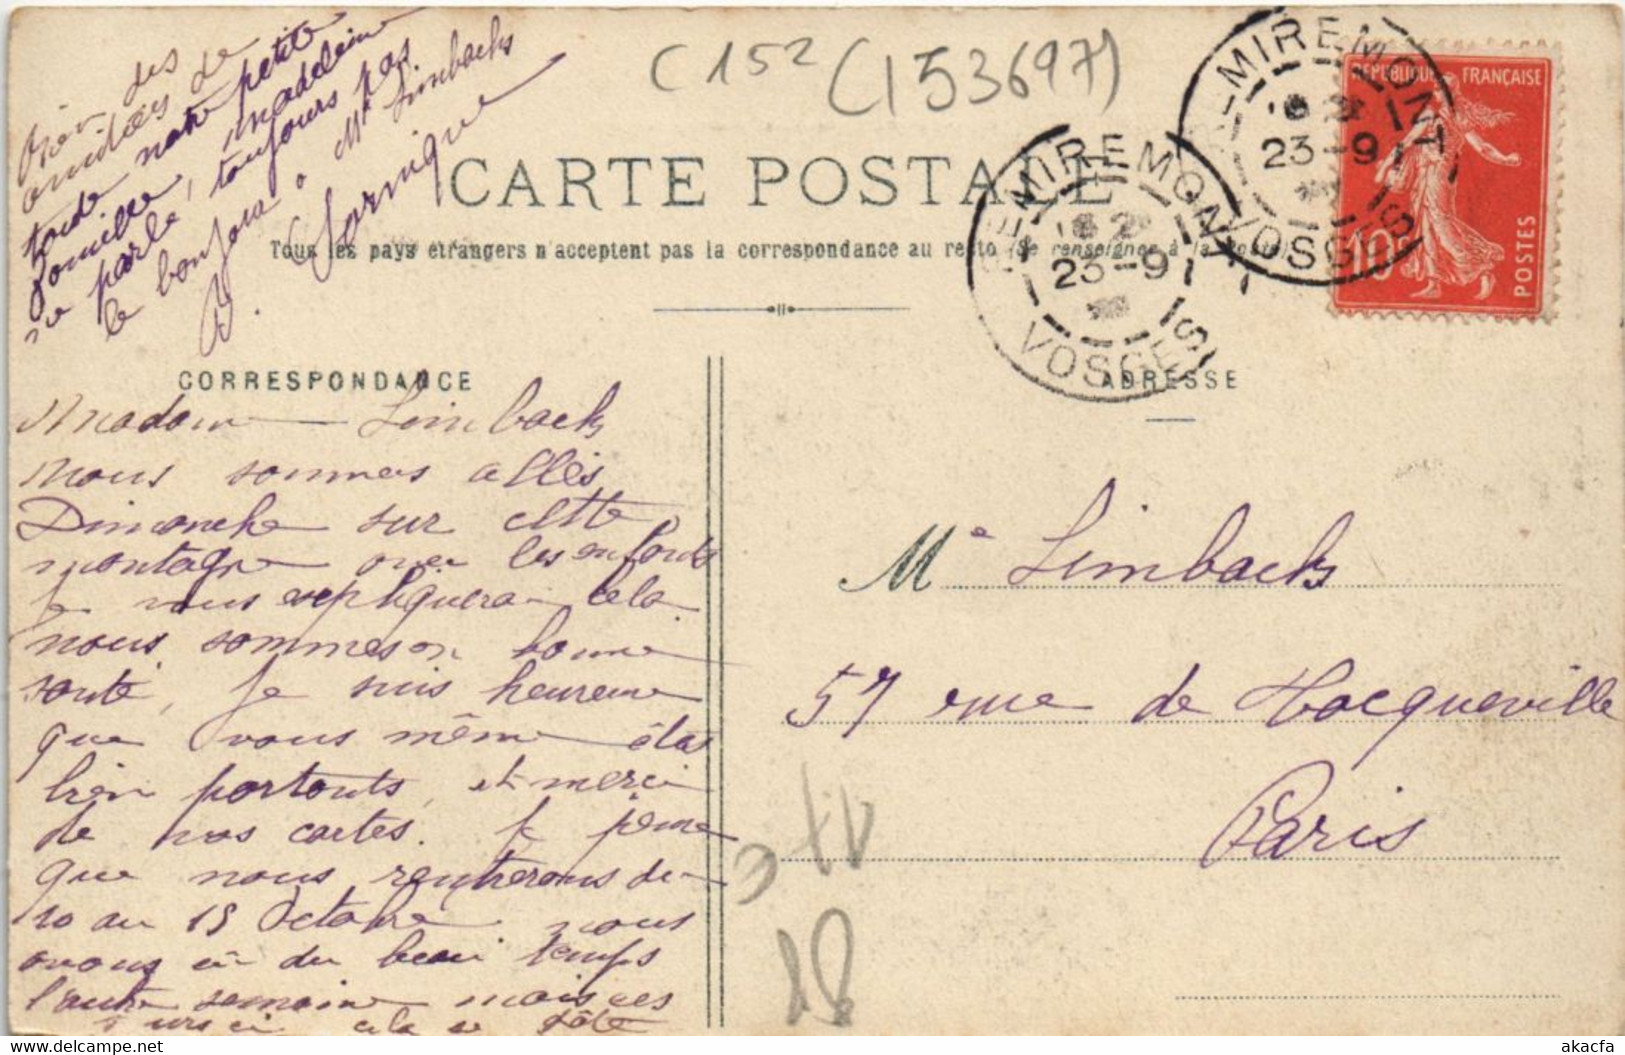 C 152 (153697)
CARTE POSTALE
Tous les pays étrangers n'acceptent pas la correspondance au recto (Se renseigner à la Poste)
REMIREMONT
23-9
VOSGES
REMIREMONT
23-9
VOSGES
REPUBLIQUE FRANÇAISE
10c
POSTES
CORRESPONDANCE
ADRESSE
Madame Limbacks
nous sommes allés
Dimanche sur cette
montagne avec les enfants
je vous expliquerai cela
nous sommes en bonne
santé, Je suis heureuse
que vous même êtes
bien portants, et merci
de vos cartes. Je pense
que nous rentrerons du
10 au 15 Octobre nous
avons eu du beau temps
l'autre semaine mais ces
jours ci cela se gâte
Bien des
amitiées de
toute notre petite
famille, madelein
ne parle, toujours pas
le bonjour à Mr Limbacks
B.
Me Limbacks
57 rue de Hocqueville
Paris
18
akacfa